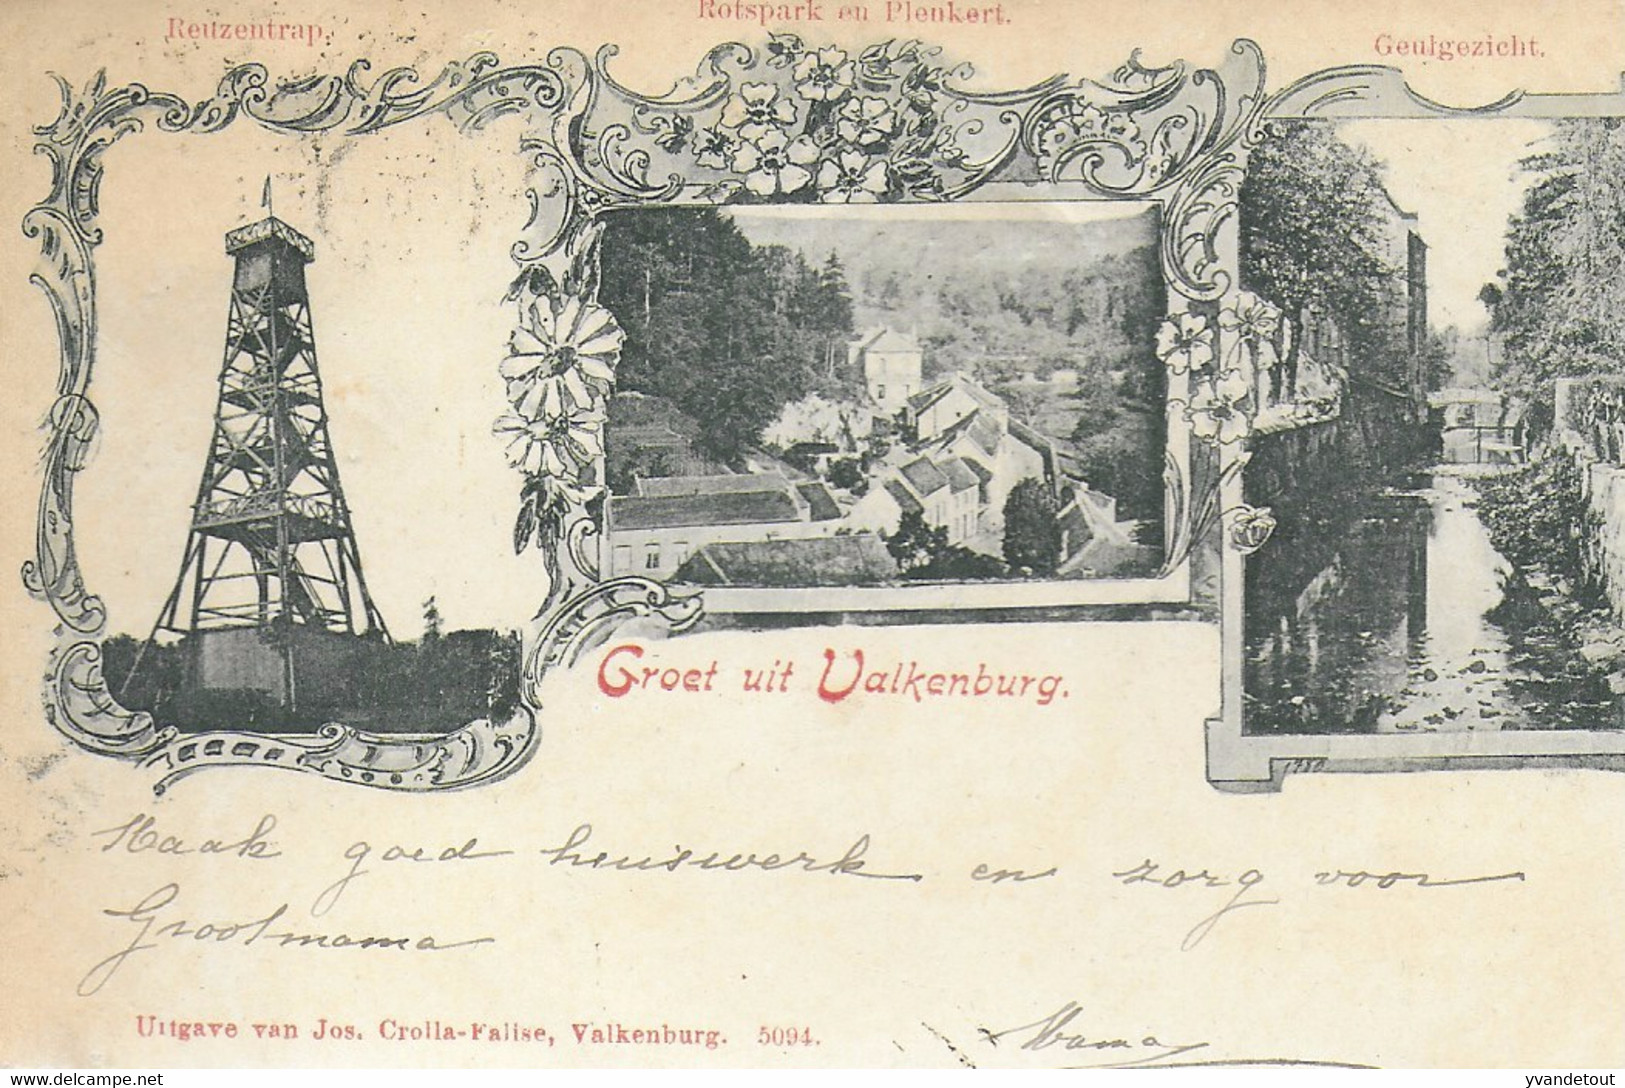 Reuzentrap.
Rotspark en Plenkert.
Geulgezicht.
Groet uit Valkenburg.
1780
Maak goed huiswerk en zorg voor
Grootmama
Uitgave van Jos. Crolla-Falise, Valkenburg. 5094.
Mama
delcampe.net
yvandetout